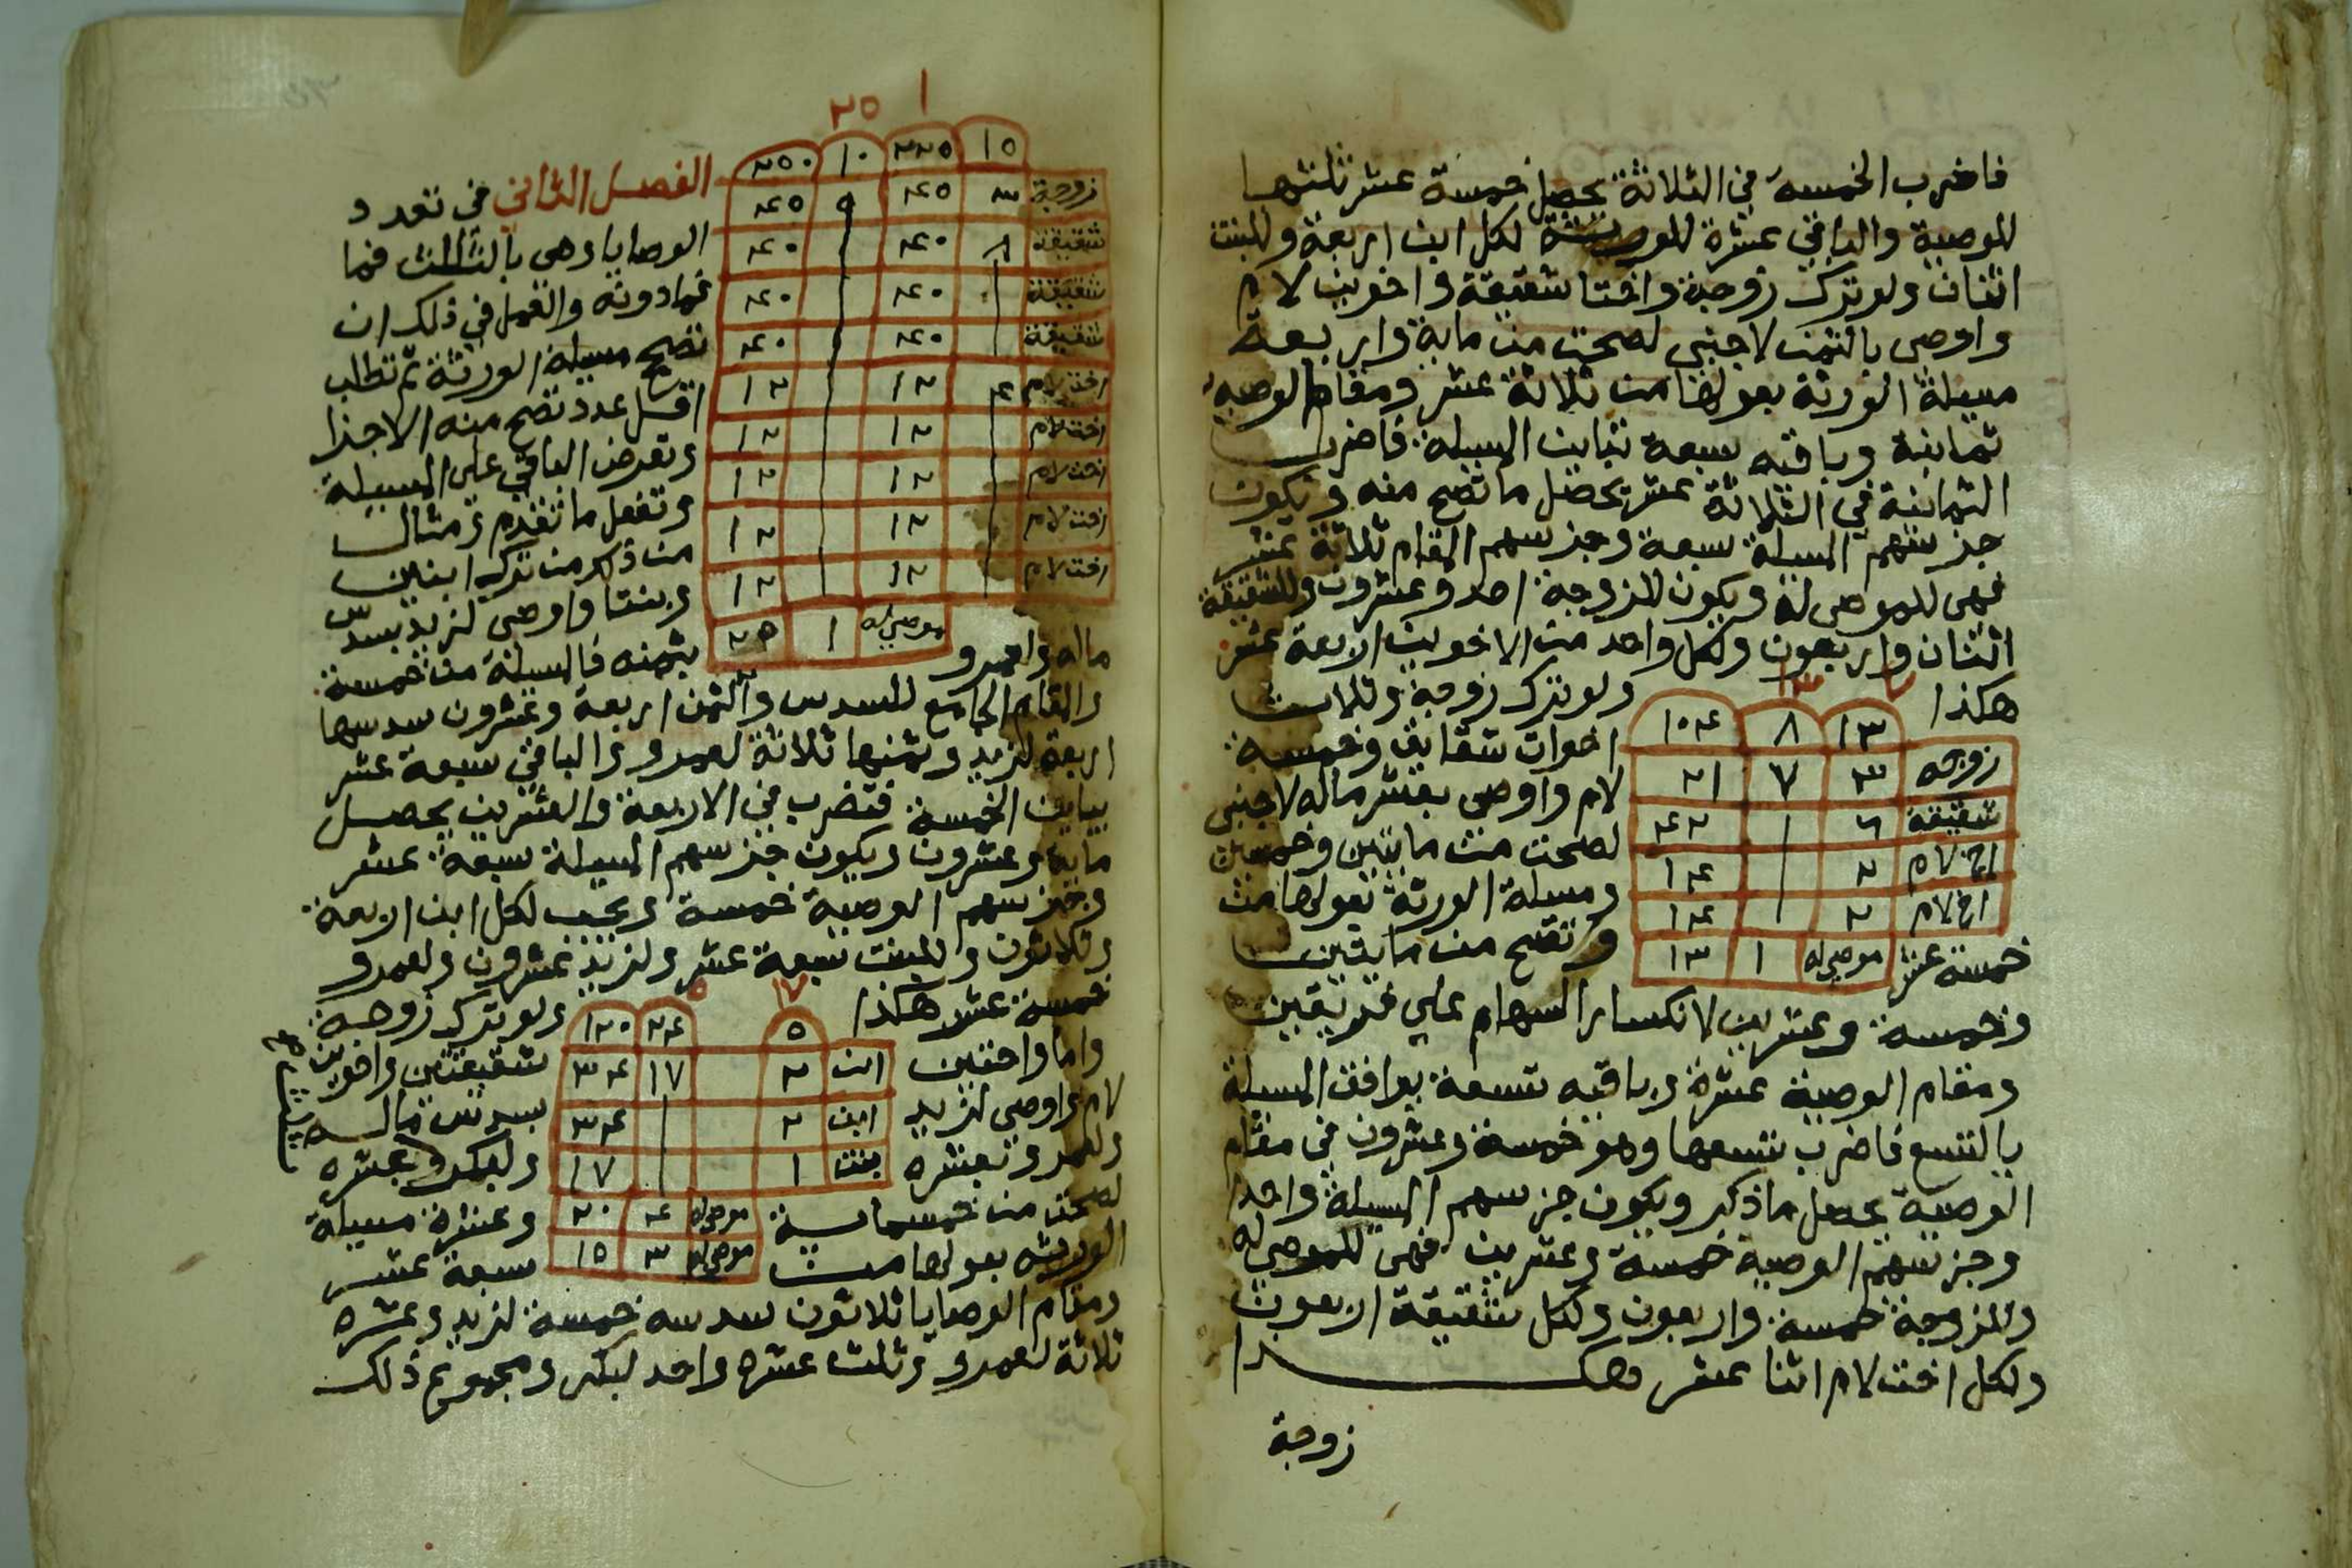 فاضرب الخمسة في الثلاثة يحصل خمسة عشر ثلثها
للوصية والباقي عشرة للورثة لكل ابن اربعة وللبنت
اثنان ولو ترك زوجة واختا شقيقة واخوين لام
واوصى بالثمن لاجنبي لصحت من ماية واربعة
مسيلة الورثة بعولها من ثلاثة عشر ومقام الوصية
ثمانية وباقيه سبعة تباين المسيلة فاضرب
الثمانية في الثلاثة عشر يحصل ما تصح منه ويكون
جز سهم المسيلة سبعة وجز سهم المقام ثلاثة عشر
فهي للموصى له ويكون للزوجة احد وعشرون وللشقيقة
اثنان واربعون ولكل واحد من الاخوين اربعة عشر
هكذا ولو ترك زوجة وثلاث
٧ ١٣
١٣ ٨ ١٠٤
اخوات شقايق وخمسة
زوجه ٣ ٧ ٢١
لام واوصى بعشر ماله لاجنبي
شقيقة ٦ ٤٢
لصحت من مايتين وخمسين
اخ لام ٢ ١٤
ومسيلة الورثة بعولها من
اخ لام ٢ ١٤
خمسة عشر وتصح من مايتين
موصى له ١ ١٣
وخمسة وعشرين لانكسار السهام على فريقين
ومقام الوصية عشرة وباقيه تسعة يوافق المسيلة
بالتسع فاضرب تسعها وهو خمسة وعشرون في مقام
الوصية يحصل ما ذكر ويكون جز سهم المسيلة واحدا
وجز سهم الوصية خمسة وعشرين فهي للموصى له
وللزوجة خمسة واربعون ولكل شقيقة اربعون
ولكل اخت لام اثنا عشر وهكذا
زوجة
١ ٢٥
١٥ ٢٢٥ ١٠ ٢٥٠
زوجة ٣ ٤٥ ٩ ٤٥
شقيقة ٨ ٤٠ ٤٠
شقيقة ٤٠ ٤٠
شقيقة ٤٠ ٤٠
اخت لام ٤ ١٢ ١٢
اخت لام ١٢ ١٢
اخت لام ١٢ ١٢
اخت لام ١٢ ١٢
اخت لام ١٢ ١٢
موصى له ١ ٢٥
الفصل الثاني في تعدد
الوصايا وهي بالثلث فما
فما دونه والعمل في ذلك ان
تصح مسيلة الورثة ثم تطلب
اقل عدد تصح منه الاجزا
وتعرض الباقي على المسيلة
وتفعل ما تقدم ومثال
من ذكر من ترك ابنين
وبنتا واوصى لزيد بسدس
ماله ولعمرو بثمنه فالمسيلة من خمسة
والمقام الجامع للسدس والثمن اربعة وعشرون سدسها
اربعة لزيد وثمنها ثلاثة لعمرو والباقي سبعة عشر
يباين الخمسة فتضرب في الاربعة والعشرين يحصل
ماية وعشرون ويكون جز سهم المسيلة سبعة عشر
وجز سهم الوصية خمسة ويجب لكل ابن اربعة
وثلاثون وللبنت سبعة عشر ولزيد عشرون ولعمرو
خمسة عشر هكذا ولو ترك زوجة
١٧ ٥
٥ ٢٤ ١٢٠
واما واختين شقيقتين واخوين
ابن ٢ ١٧ ٣٤
لام واوصى لزيد بسدس ماله
ابن ٢ ٣٤
ولعمرو بعشره ولبكر
بنت ١ ١٧
موصى له ٤ ٢٠
موصى له ٣ ١٥
لصحت من خمسماية وعشرة مسيلة
الورثه بعولها من سبعة عشر
ومقام الوصايا ثلاثون سدسه خمسة لزيد وعشره
ثلاثة لعمرو وثلث عشره واحد لبكر ومجموع ذلك